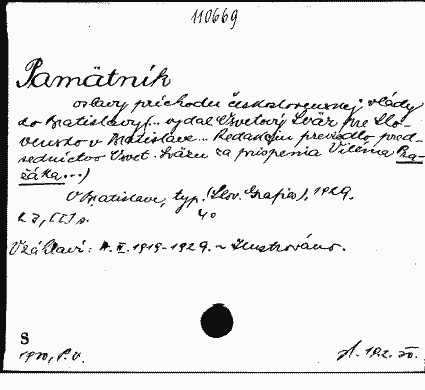 110669
Pamätník
oslavy príchodu československej vlády
do Bratislavy(... vydal Osvetový Sväz pre Slo-
vensko v Bratislave... Redakciu previedlo pred-
sedníctvo Osvet. Sväzu za prispenia Viléma Pra-
žáka...)
V Bratislave, typ. (Slov. Grafia), 1929.
4°
V záhlaví: 4. II. 1919-1929. ~ Ilustrováno.
S
1930, P. V.